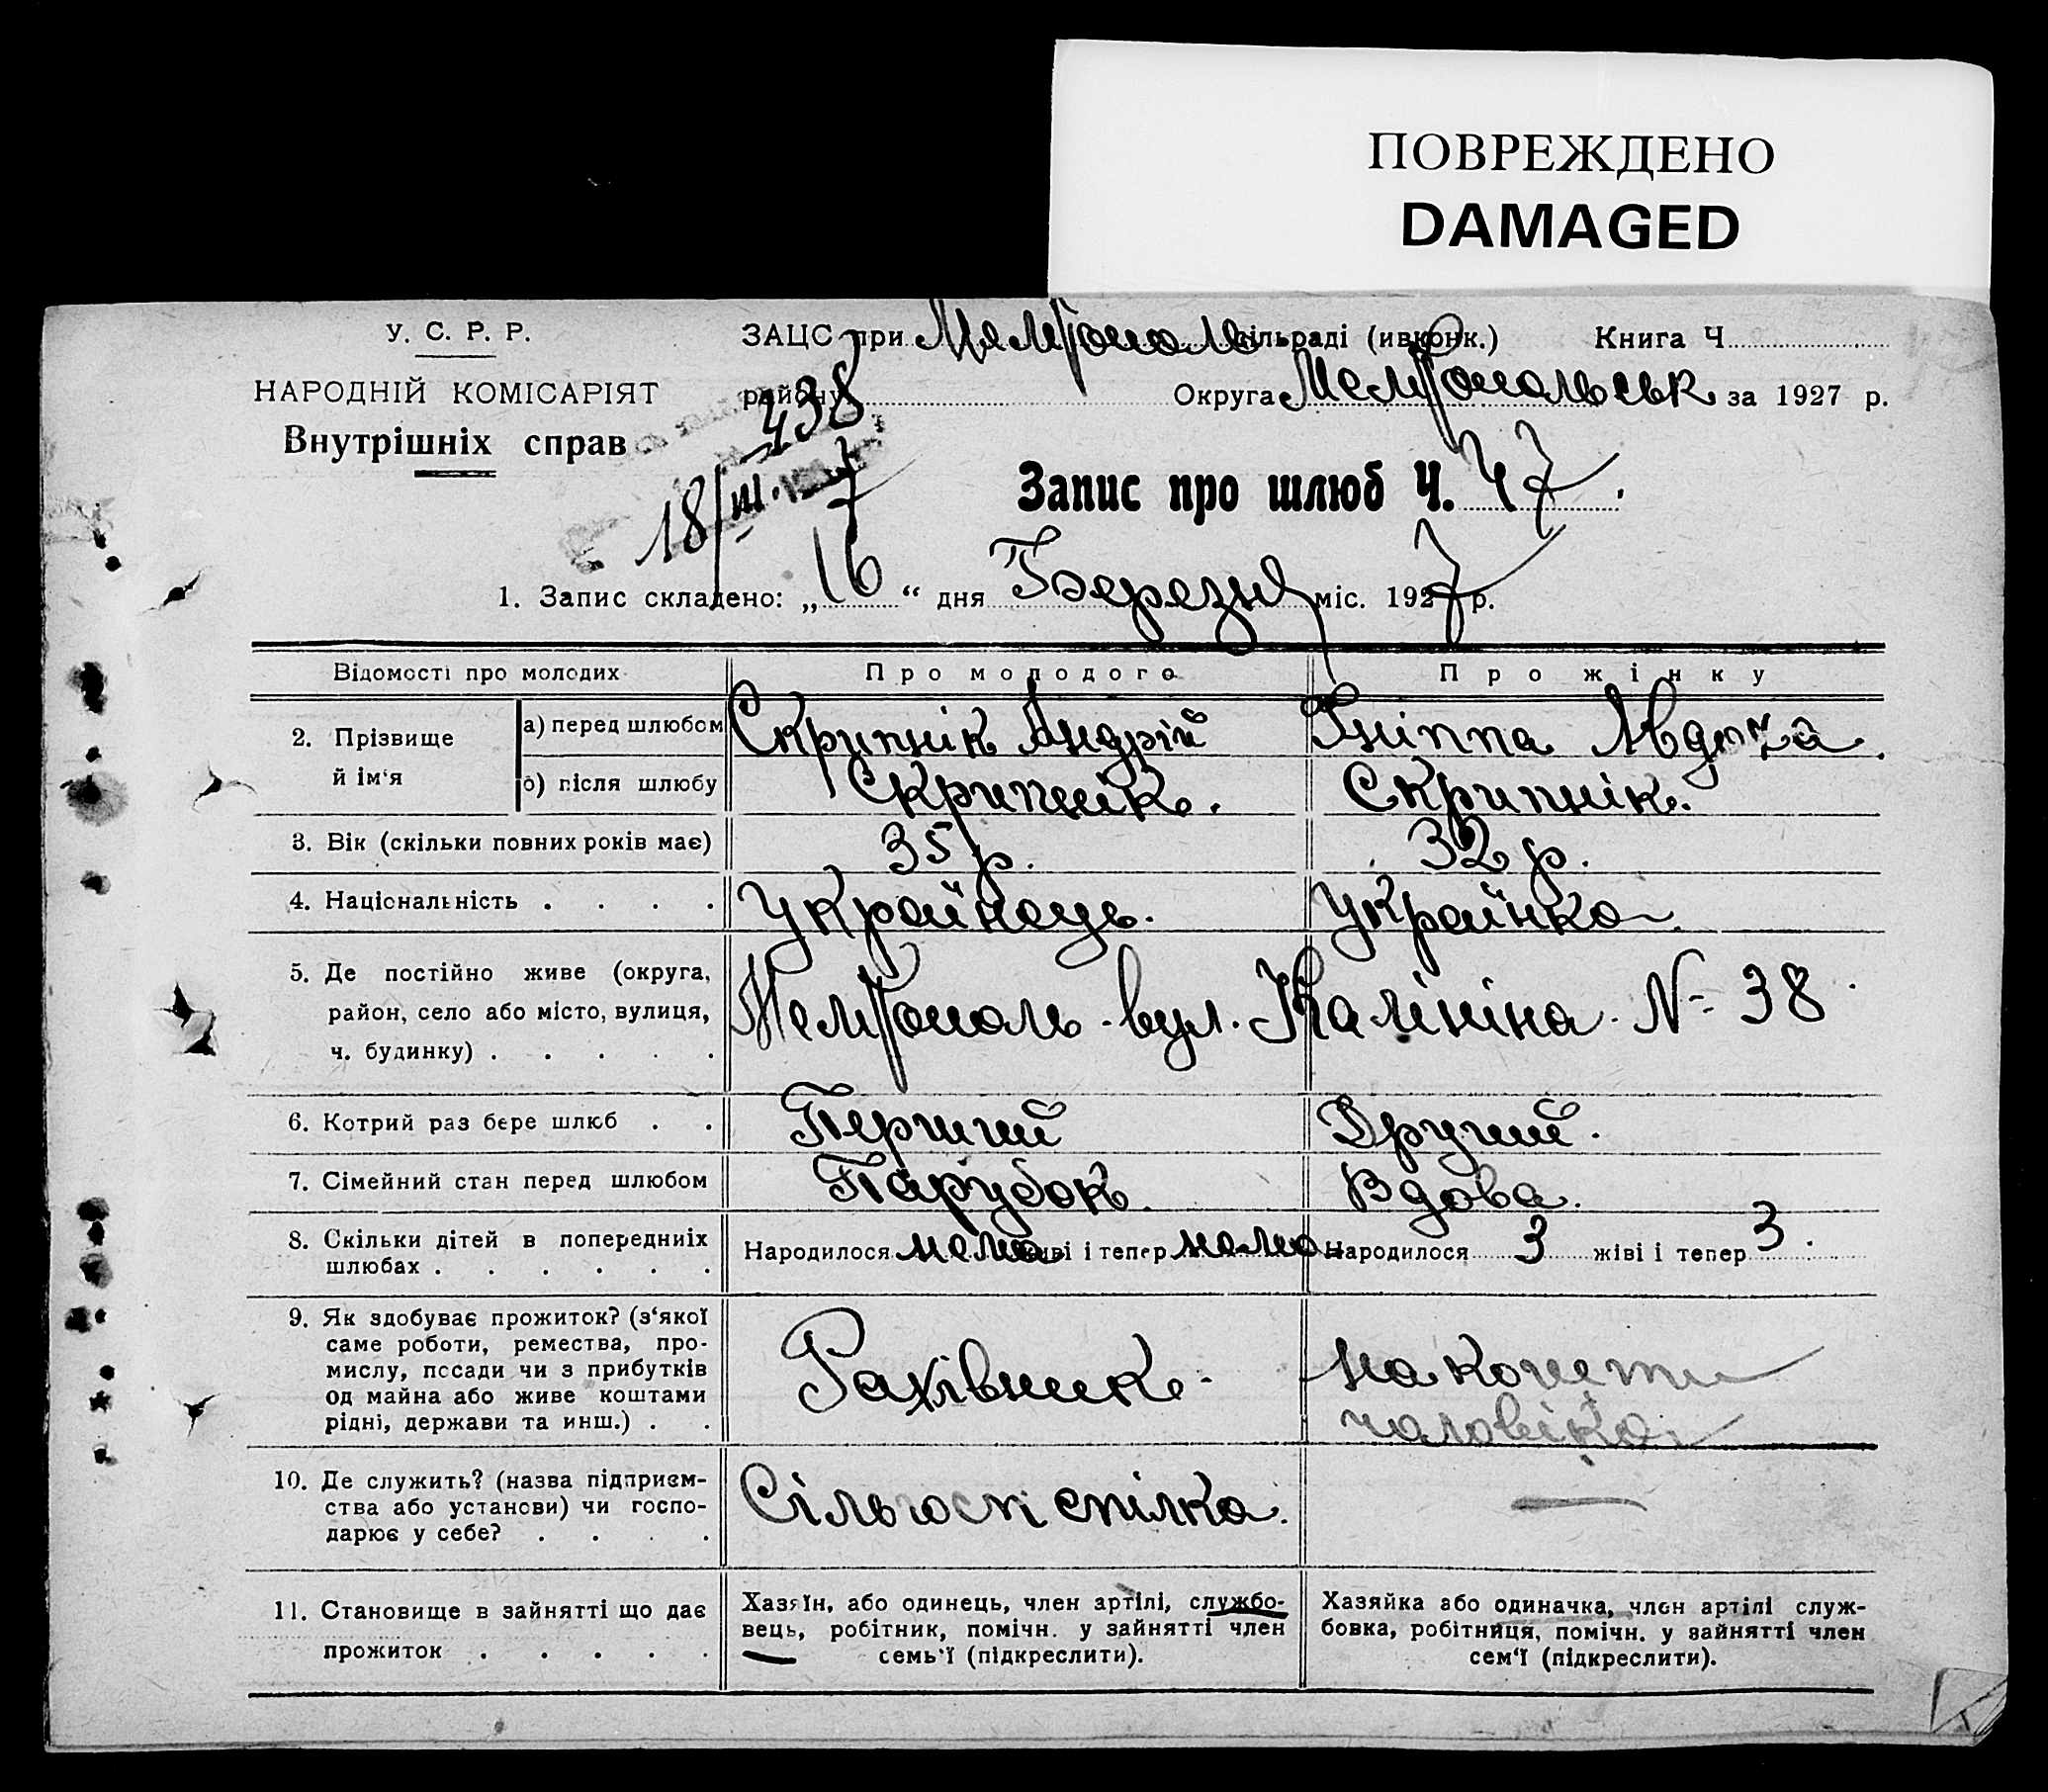 ПОВРЕЖДЕНО
DAMAGED
У. С. Р. Р.
НАРОДНІЙ КОМІСАРІЯТ
Внутрішніх справ
ЗАЦС при Мелітополь сільраді (ивконк.) Книга Ч
району Округа Мелітопольськ за 1927 р.
438
18/III 7
Запис про шлюб Ч. 47.
1. Запис складено: „16“ дня Березня міс. 1927 р.
Відомості про молодих
Про молодого
Про жінку
2. Прізвище й ім‘я
а) перед шлюбом Скрипнік Андрій
б) після шлюбу Скрипнік. Скрипнік.
3. Вік (скільки повних років має) 35 р. 32 р.
4. Національність . . . . Українець. Українка
5. Де постійно живе (округа,
район, село або місто, вулиця,
ч. будинку) . . . . .
Мелітополь. вул. Калініна. № 38
6. Котрий раз бере шлюб . . Перший Другий.
7. Сімейний стан перед шлюбом Парубок. Вдова.
8. Скільки дітей в попередниіх
шлюбах . . . . . .
Народилося нема живі і тепер нема
Народилося 3 жіві і тепер 3.
9. Як здобуває прожиток? (з‘якої
саме роботи, ремества, про-
мислу, посади чи з прибутків
од майна або живе коштами
рідні, держави та инш.) . .
Рахівник.
на кошти
чоловіка
10. Де служить? (назва підприєм-
ства або установи) чи госпо-
дарює у себе? . . . .
Сільгосп спілка.
—
11. Становище в зайнятті що дає
прожиток . . . . .
Хазяїн, або одинець, член артілі, службо-
вець, робітник, помічн. у зайнятті член
семь‘ї (підкреслити).
Хазяйка або одиначка, член артілі служ-
бовка, робітниця, помічн. у зайнятті член
сем‘ї (підкреслити).